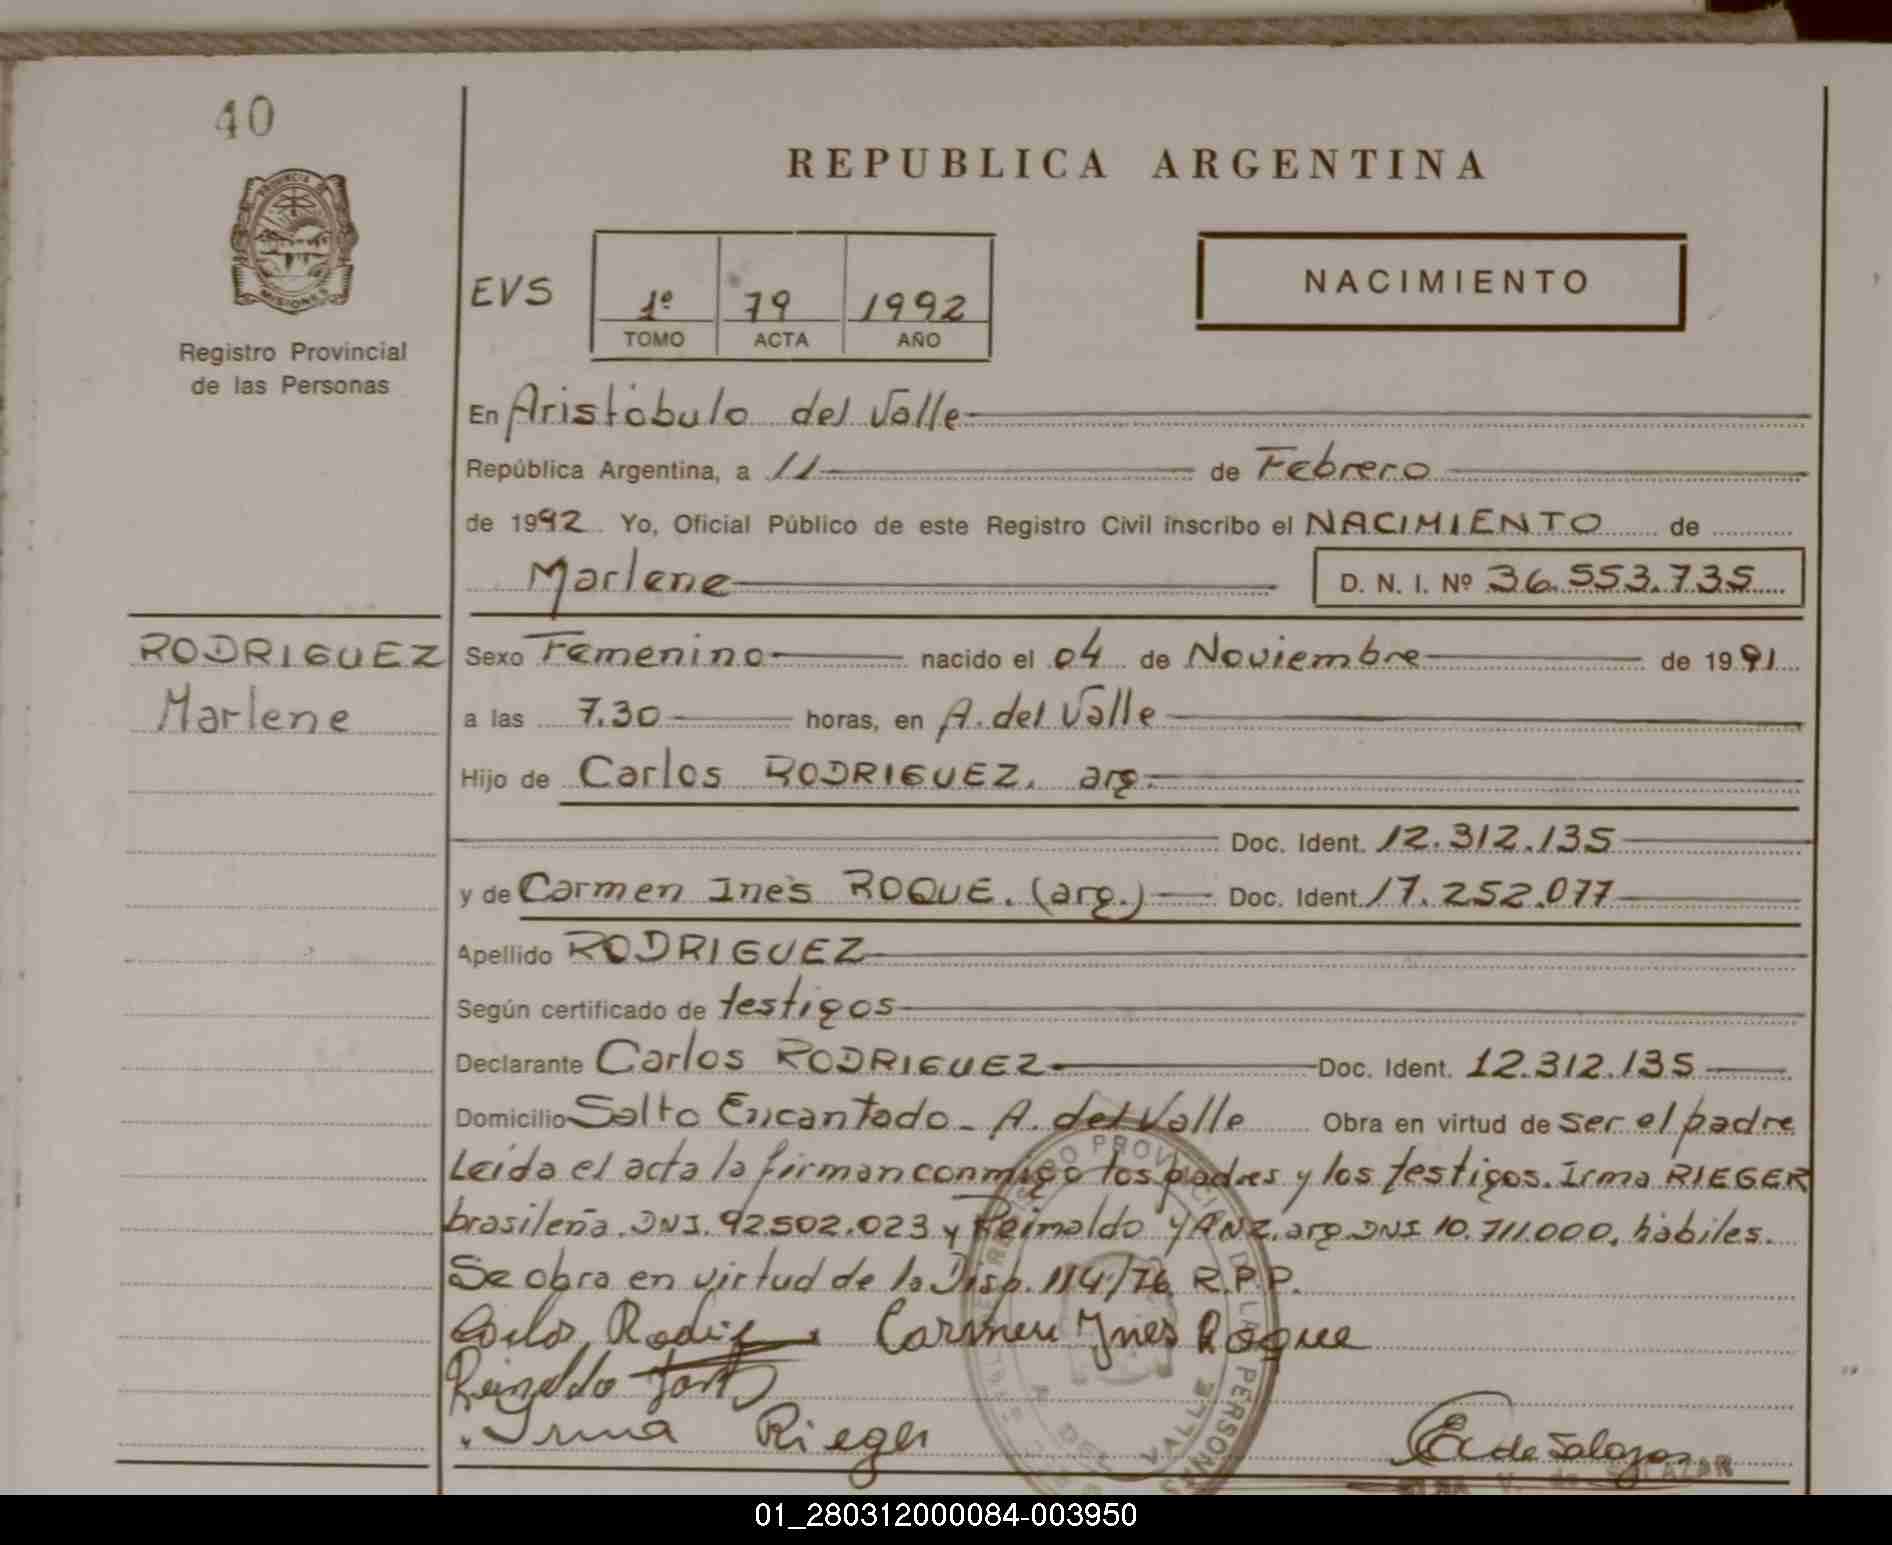 40
REPUBLICA ARGENTINA
PROVINCIA D
MISIONES
Registro Provincial
de las Personas
EVS
1º 79 1992
TOMO ACTA AÑO
NACIMIENTO
En Aristóbulo del Valle
República Argentina, a 11 de Febrero
de 1992 Yo, Oficial Público de este Registro Civil inscribo el NACIMIENTO de
Marlene D. N. I. Nº 36.553.735
RODRIGUEZ
Marlene
Sexo Femenino nacido el 04 de Noviembre de 1991
a las 7.30 horas, en A. del Valle
Hijo de Carlos RODRIGUEZ. arg.
Doc. Ident. 12.312.135
y de Carmen Inés ROQUE. (arg.) Doc. Ident. 17.252.077
Apellido RODRIGUEZ
Según certificado de testigos
Declarante Carlos RODRIGUEZ Doc. Ident. 12.312.135
Domicilio Salto Encantado - A. del Valle Obra en virtud de ser el padre
Leida el acta la firman conmigo los padres y los testigos. Irma RIEGER
brasileña. DNI. 92.502.023 y Reinaldo YANZ. arg. DNI 10.711.000, hábiles.
Se obra en virtud de la Disp. 114/76 R.P.P.
Carlos Rodrig Carmen Ynes Roque
Reinaldo
Irma Rieger
de Salazar
SALAZAR
A. DEL VALLE
01_280312000084-003950